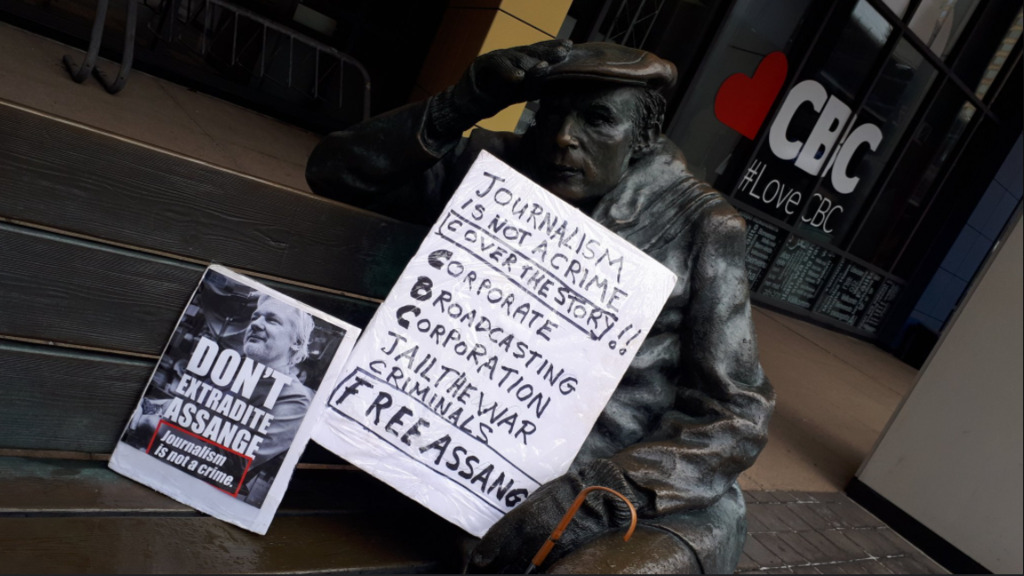 CBC
#Love CBC
JOURNALISM
IS NOT A CRIME
COVER THE STORY!!
CORPORATE
BROADCASTING
CORPORATION
JAIL THE WAR
CRIMINALS
FREE ASSANG
DON'T
EXTRADITE
ASSANGE
Journalism
is not a crime.